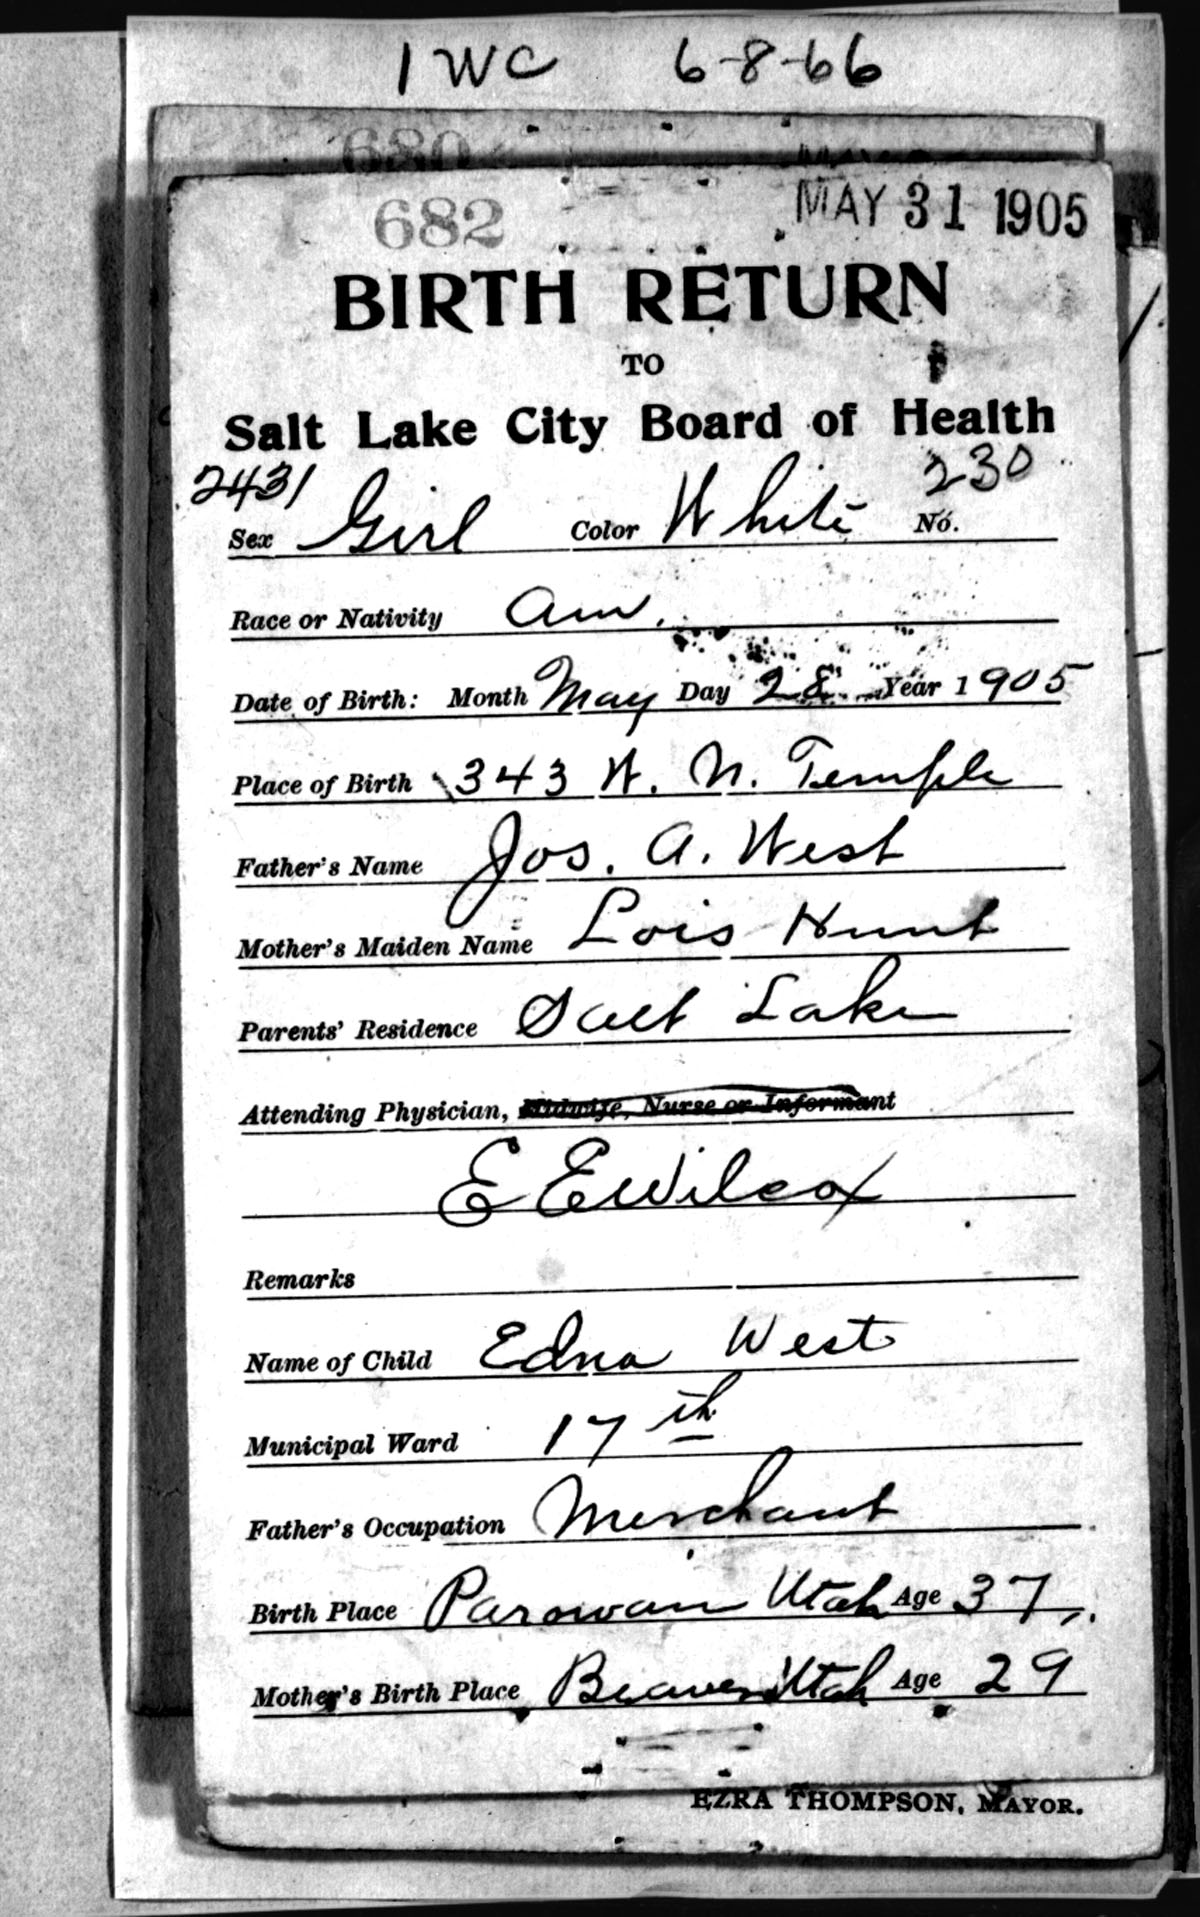 1 WC 6-8-66
680
682 MAY 31 1905
BIRTH RETURN
TO
Salt Lake City Board of Health
2431 230
Sex Girl Color White No.
Race or Nativity Am.
Date of Birth: Month May Day 28 Year 1905
Place of Birth 343 W. N. Temple
Father's Name Jos. A. West
Mother's Maiden Name Lois Hunt
Parents' Residence Salt Lake
Attending Physician, Midwife, Nurse or Informant
E E Wilcox
Remarks
Name of Child Edna West
Municipal Ward 17th
Father's Occupation Merchant
Birth Place Parowan Utah Age 37
Mother's Birth Place Beaver Utah Age 29
EZRA THOMPSON, MAYOR.